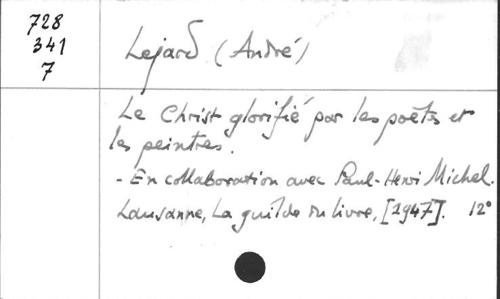 728
341
7
Lejard (André)
Le Christ glorifié par les poëtes et
les peintres.
- En collaboration avec Paul-Henri Michel.
Lausanne, La guilde du livre, [1947]. 12°